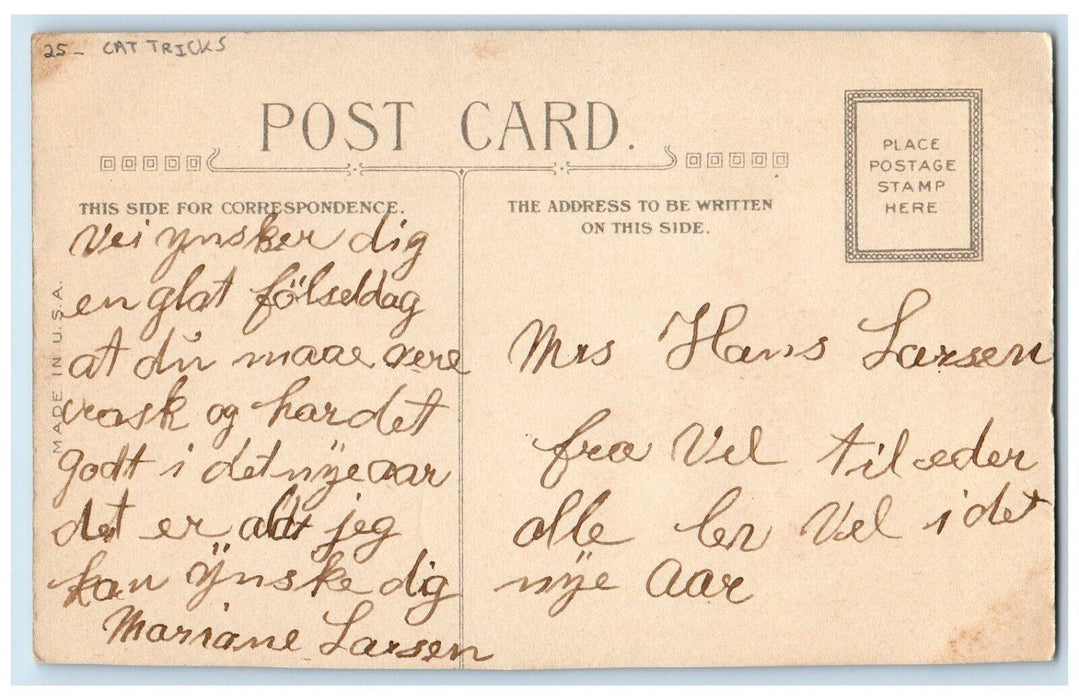 25- CAT TRICKS
POST CARD.
THIS SIDE FOR CORRESPONDENCE.
Vei ynsker dig
en glat fölseldag
at du maae vere
rask og har det
godt i det nye aar
det er aldt jeg
kan ÿnske dig
Mariane Larsen
MADE IN U.S.A.
THE ADDRESS TO BE WRITTEN
ON THIS SIDE.
PLACE
POSTAGE
STAMP
HERE
Mrs Hans Larsen
fra Vel til eder
alle Vel i det
nye Aar